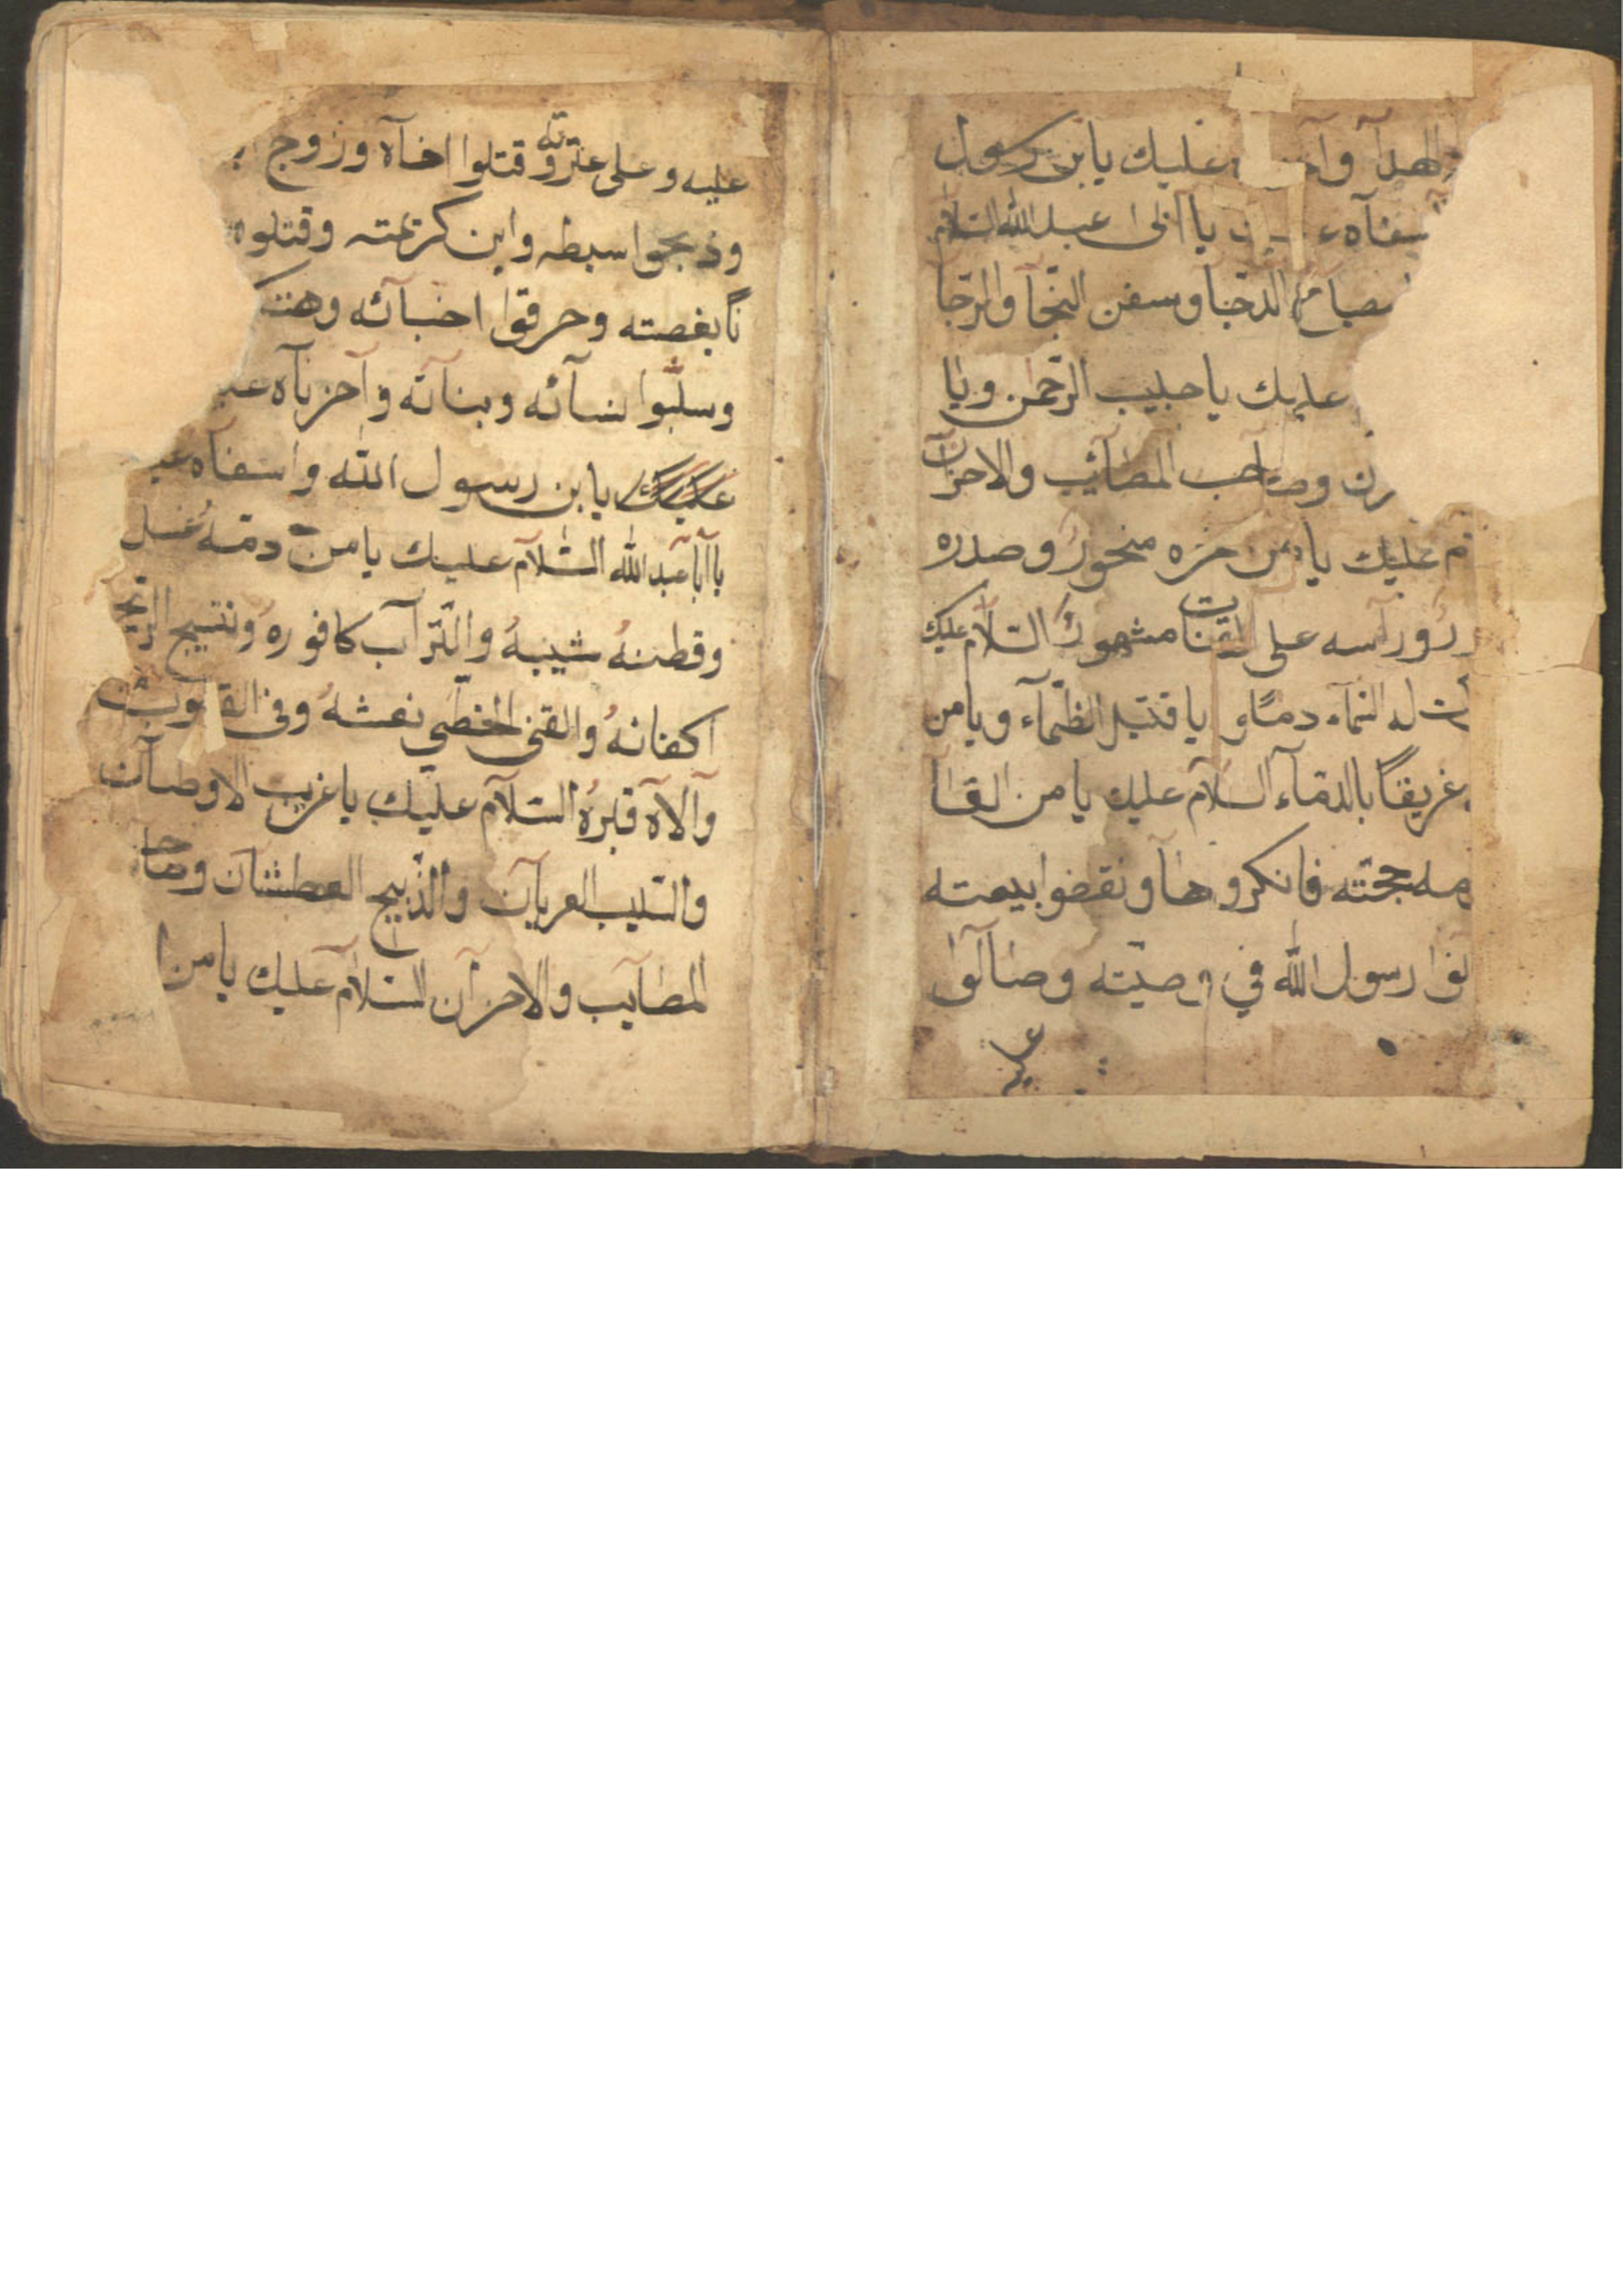 الهدآ وآ عليك يابن رسول
سفآه يا ابى عبد الله السلام
الدجا و سفن النجآ والرجآ
عليك يا حبيب الرحمن ويا
وصاحب المصآئب والاحزآن
م عليك يا من حزه منحورٌ و صدره
ورآسه على القنات مشهورٌ السلام عليك
ت له السمآء دمآء يا قتيل الظمآء ويا من
غريقًا بالدمآء السلآم عليك يا من القا
حجته فانكروها و نقضوا بيعته
لفوا رسول الله في وصيّته وصالوا
عليه
عليه و على عترته و قتلوا اخآه وزوج
وذبحوا سبطه وابن كريمته وقتلوه
بغصته وحرقوا اخبآئه وهتكـ
وسلبوا نسآئه وبنآته وآحزنآه
يا بن رسول الله واسفآه
يا آبا عبد الله السلآم عليك يا من دمّهُ غسل
وقطنهُ شيبهُ والترآب كافورهُ ونسيج الريح
اكفانهُ والقنى الخطّي نعشهُ وفي القلوب من
وآلآه قبرهُ السلآم عليك يا غريب الاوطآن
والسليب العريآن والذّبيح العطشان وصا
المصآيب والاحزآن السلآم عليك يا من